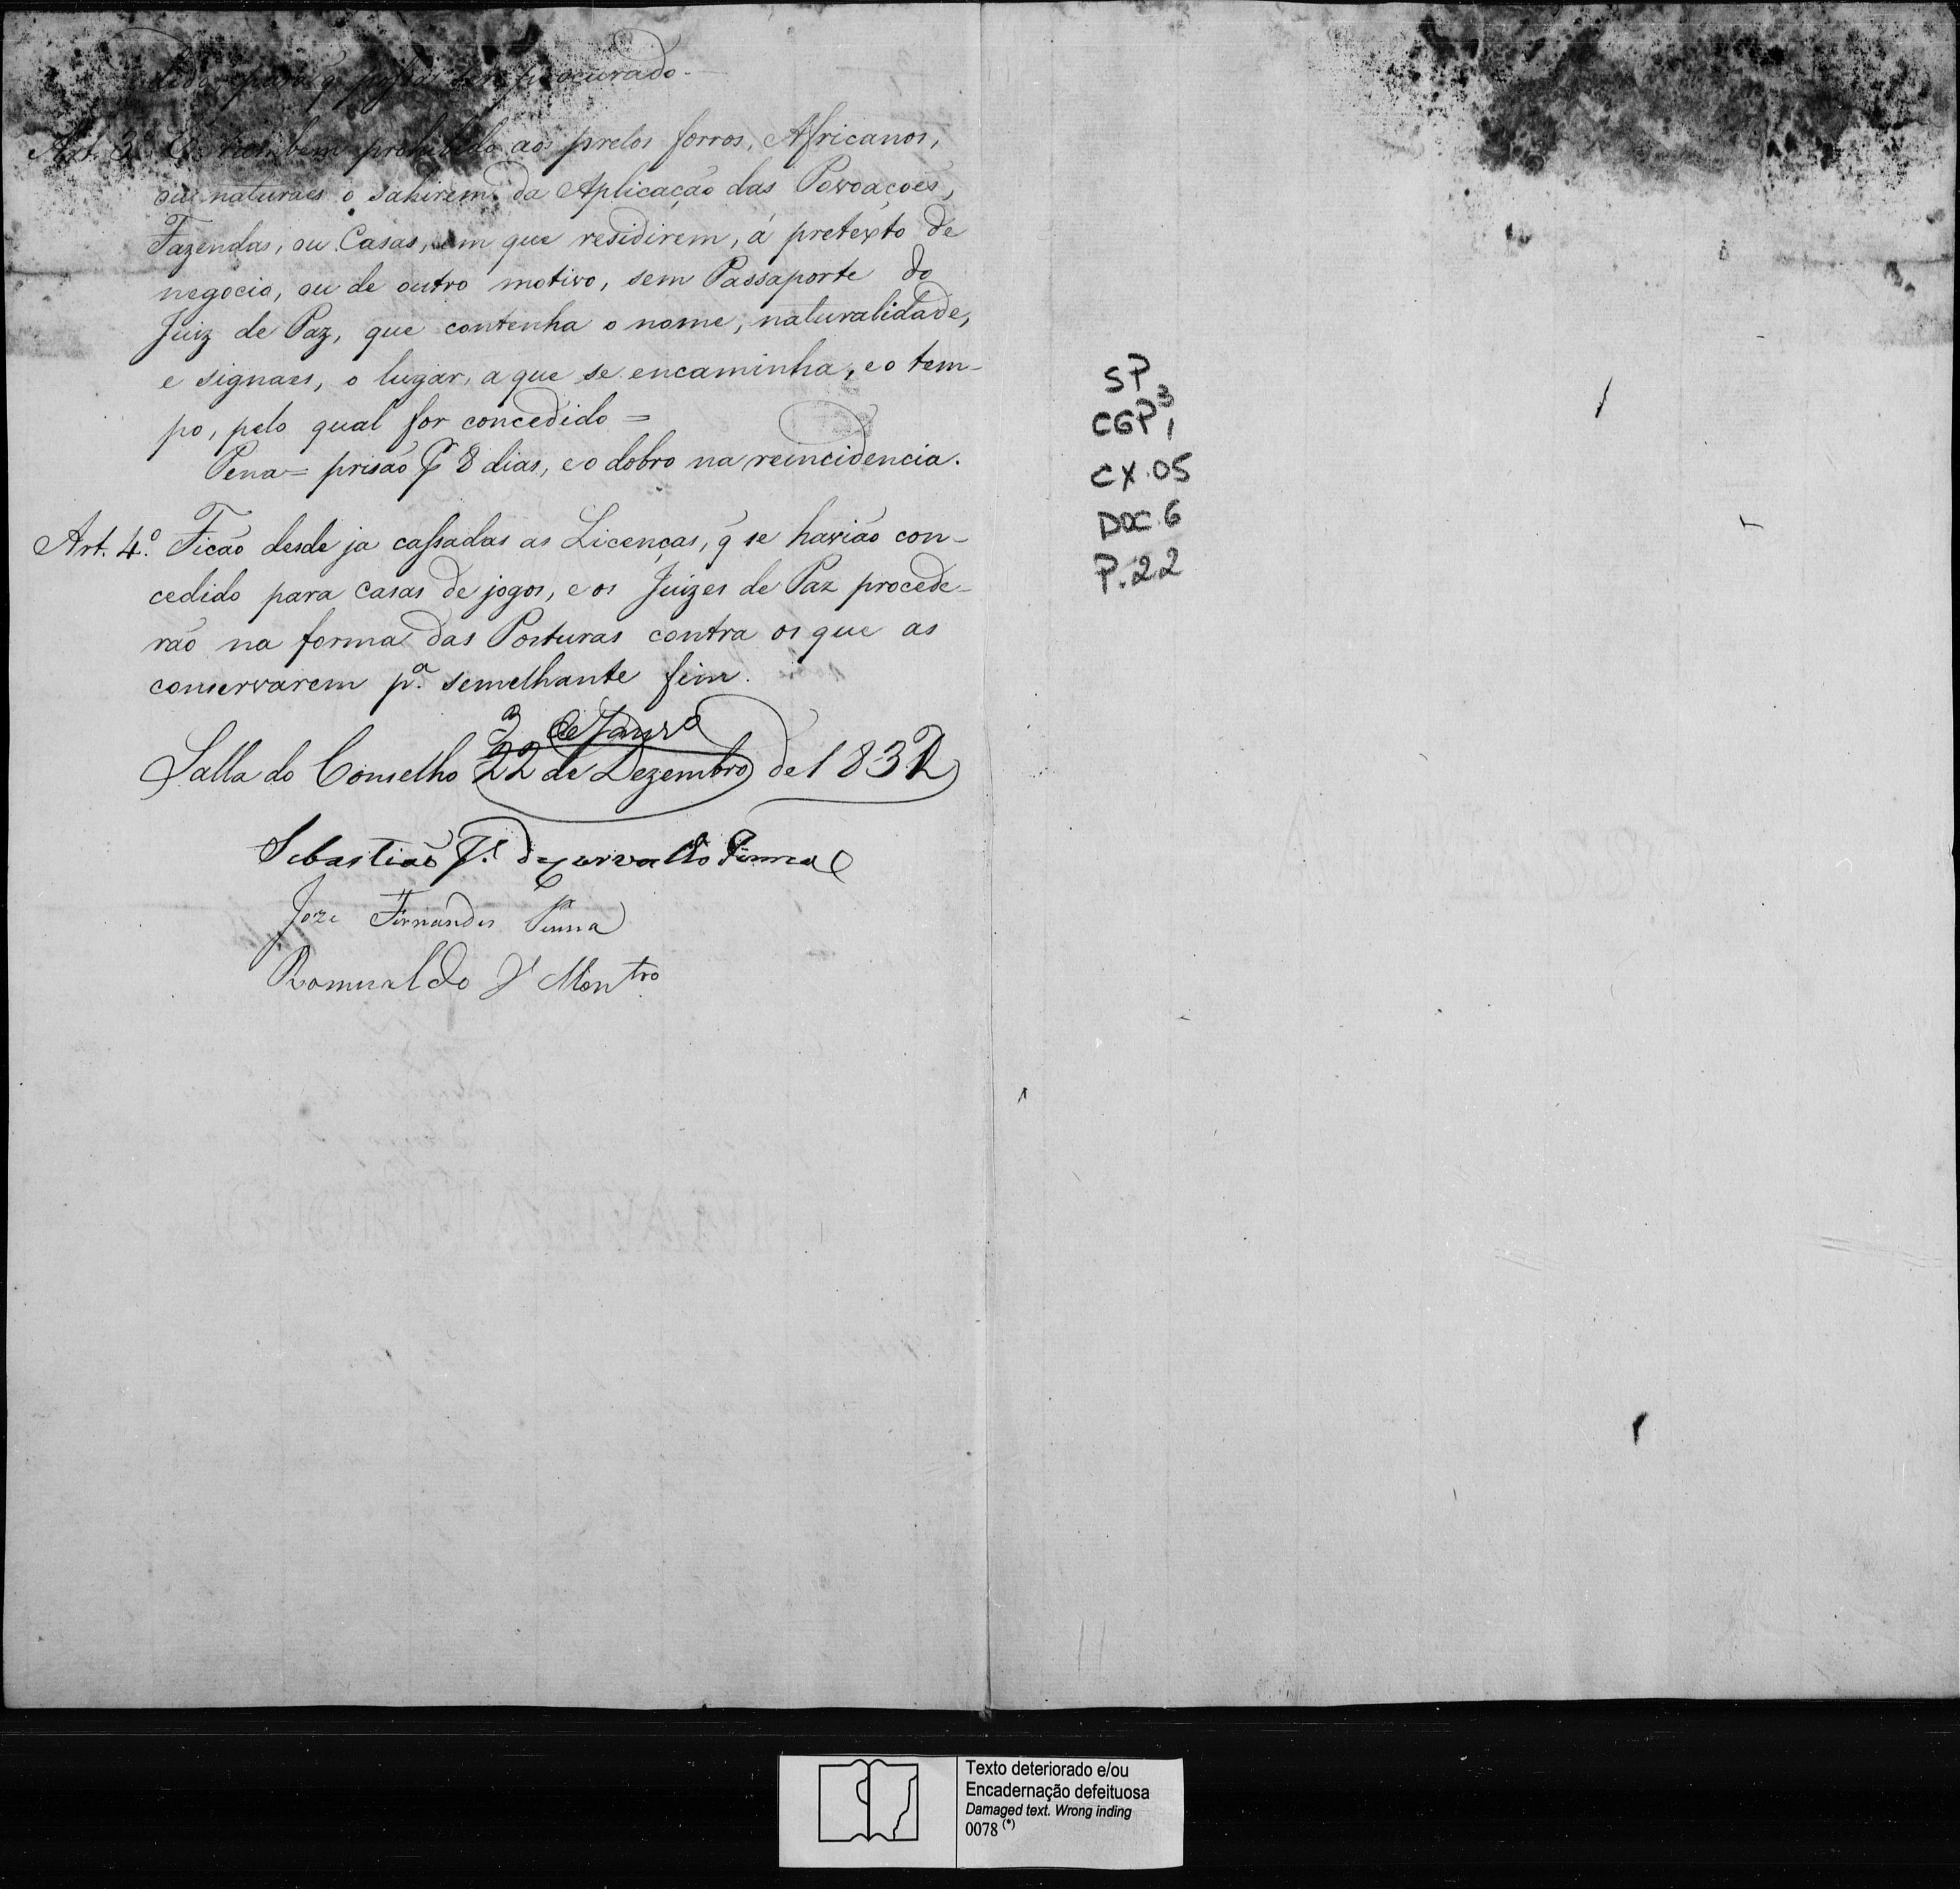 para q. possa ser procurado.
Art. 3º He tambem prohibido aos pretos forros, Africanos,
ou naturaes o sahirem da Aplicação das Povoaçoẽs,
Fazendas, ou Casas, em que residirem, á pretexto de
negocio, ou de outro motivo, sem Passaporte do
Juiz de Paz, que contenha o nome, naturalidade,
e signaes, o lugar, a que se encaminha, e o tem-
po, pelo qual for concedido =
Pena = prisão p 8 dias, e o dobro na reincidencia.
Art. 4.º Ficão desde ja cassadas as Licenças, q̃ se havião con-
cedido para casas de jogos, e os Juizes de Paz procede-
rão na forma das Posturas contra os que as
conservarem p.ª semelhante fim.
3 de Janrº
Salla do Conselho 22 de Dezembro de 1832
Sebastião J.e de Carvalho Penna
Joze Fernandes Penna
Romualdo J.e Montro
SP
CGP 3
1
CX.05
DOC.6
P.22
Texto deteriorado e/ou
Encadernação defeituosa
Damaged text. Wrong inding
0078 (*)